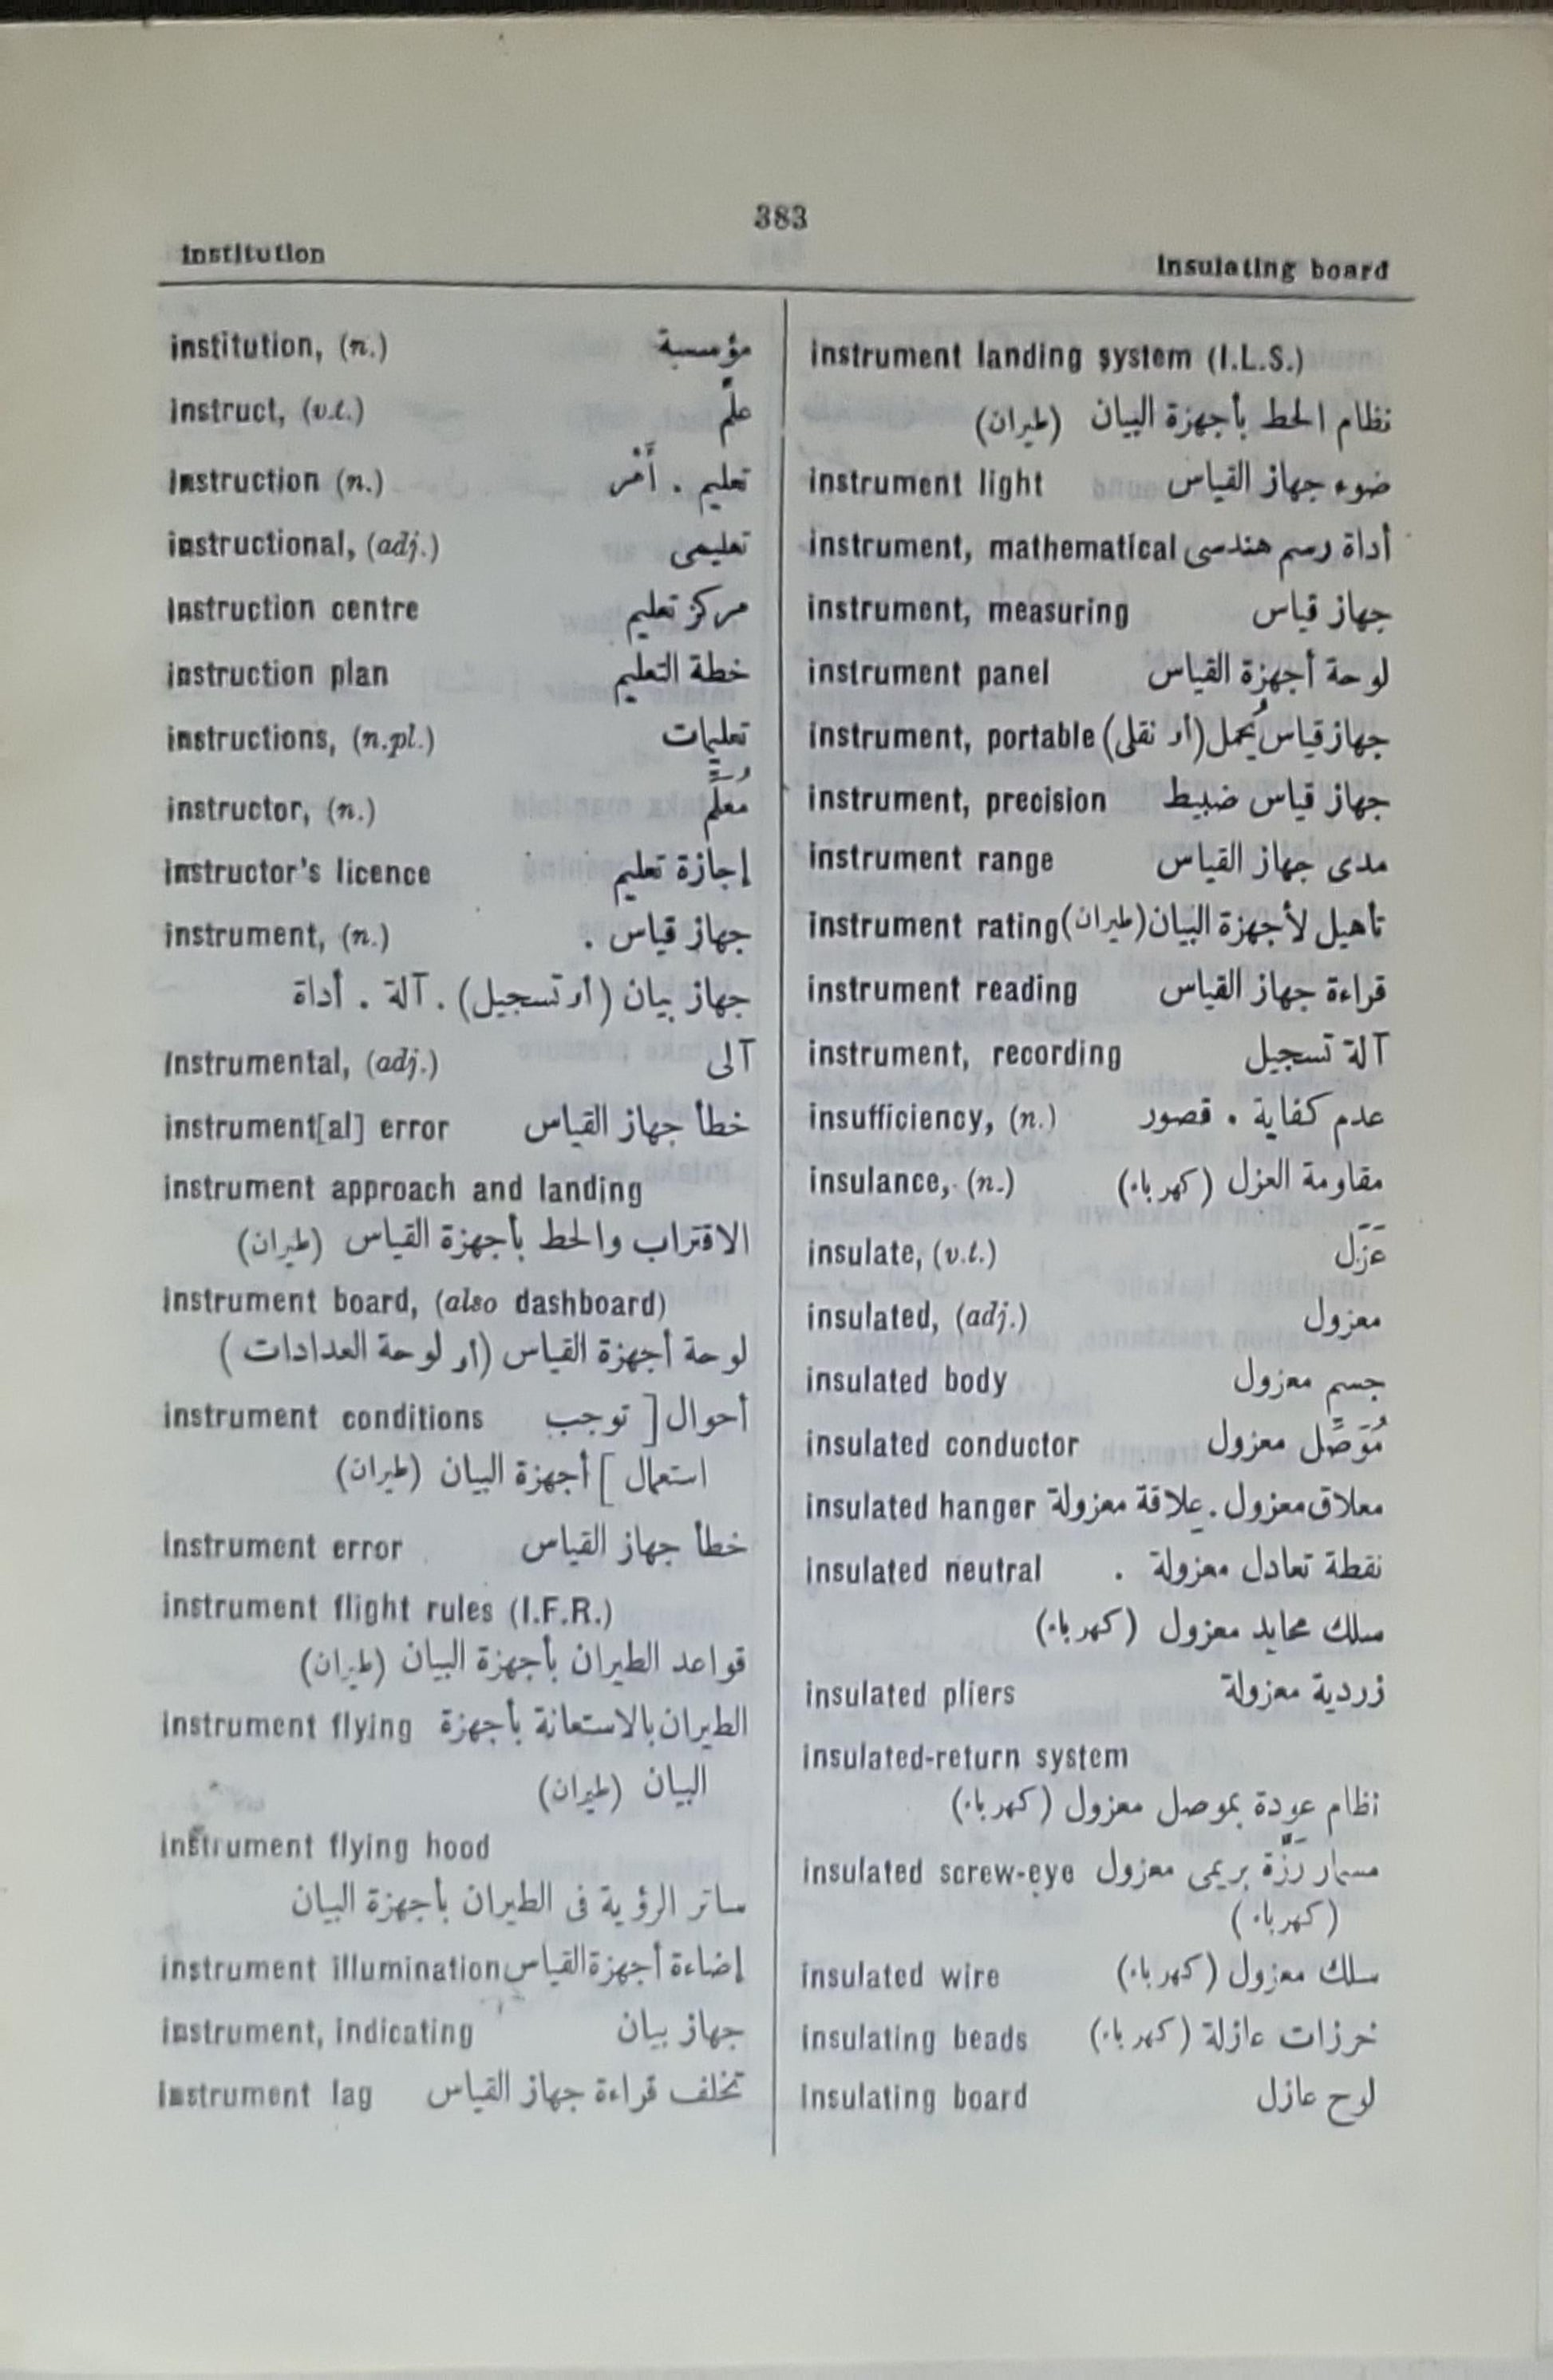 383
institution
insulating board
institution, (n.) مؤسسة
instruct, (v.t.) علّم
instruction (n.) تعليم . أَمْر
instructional, (adj.) تعليمى
instruction centre مركز تعليم
instruction plan خطة التعليم
instructions, (n.pl.) تعليمات
instructor, (n.) مُعَلِّم
instructor's licence إجازة تعليم
instrument, (n.) جهاز قياس .
جهاز بيان (أو تسجيل) . آلة . أداة
instrumental, (adj.) آلى
instrument[al] error خطأ جهاز القياس
instrument approach and landing
الاقتراب والحط بأجهزة القياس (طيران)
instrument board, (also dashboard)
لوحة أجهزة القياس (أو لوحة العدادات)
instrument conditions أحوال [ توجب
استعمال ] أجهزة البيان (طيران)
instrument error خطأ جهاز القياس
instrument flight rules (I.F.R.)
قواعد الطيران بأجهزة البيان (طيران)
instrument flying الطيران بالاستعانة بأجهزة
البيان (طيران)
instrument flying hood
ساتر الرؤية فى الطيران بأجهزة البيان
instrument illumination إضاءة أجهزة القياس
instrument, indicating جهاز بيان
instrument lag تخلف قراءة جهاز القياس
instrument landing system (I.L.S.)
نظام الحط بأجهزة البيان (طيران)
instrument light ضوء جهاز القياس
instrument, mathematical أداة رسم هندسى
instrument, measuring جهاز قياس
instrument panel لوحة أجهزة القياس
instrument, portable جهاز قياس يُحمل (أو نقلى)
instrument, precision جهاز قياس ضبيط
instrument range مدى جهاز القياس
instrument rating تأهيل لأجهزة البيان (طيران)
instrument reading قراءة جهاز القياس
instrument, recording آلة تسجيل
insufficiency, (n.) عدم كفاية . قصور
insulance, (n.) مقاومة العزل (كهرباء)
insulate, (v.t.) عَزَل
insulated, (adj.) معزول
insulated body جسم معزول
insulated conductor مُوَصِّل معزول
insulated hanger معلاق معزول . عِلاقة معزولة
insulated neutral نقطة تعادل معزولة .
سلك محايد معزول (كهرباء)
insulated pliers زردية معزولة
insulated-return system
نظام عودة بموصل معزول (كهرباء)
insulated screw-eye مسمار رَزّة بريمى معزول
(كهرباء)
insulated wire سلك معزول (كهرباء)
insulating beads خرزات عازلة (كهرباء)
insulating board لوح عازل